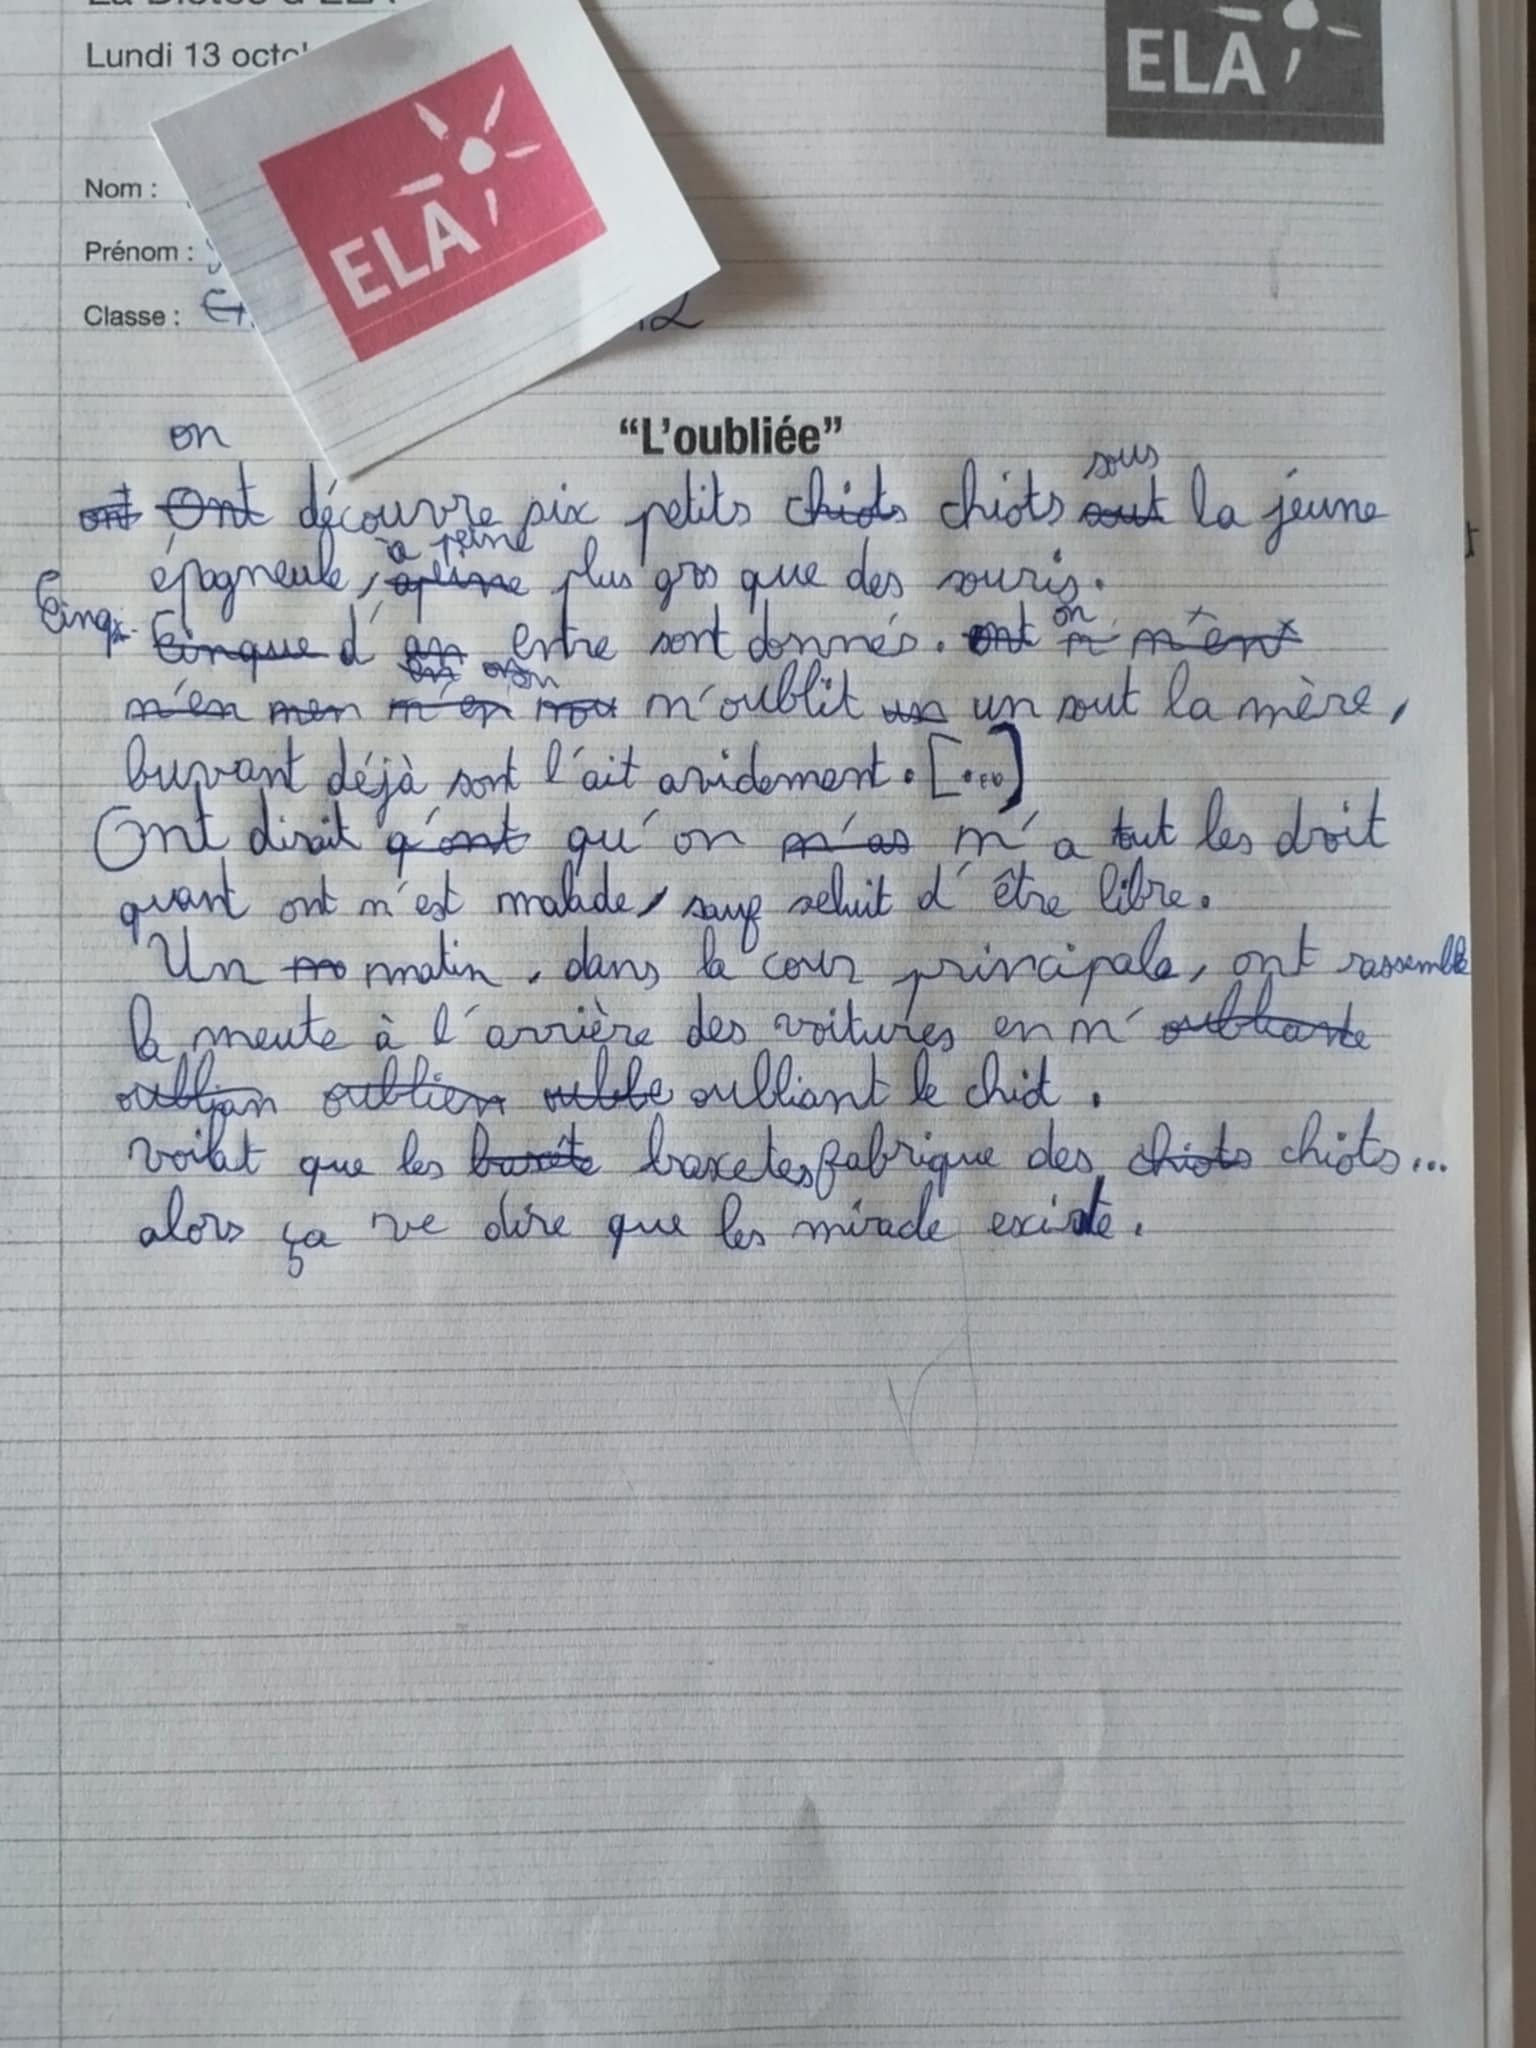 Lundi 13 octo
ELA
ELA
Nom :
Prénom :
Classe :
"L'oubliée"
on
sous
ont Ont découvre six petits chiots chiots sout la jeune
à peine
épagneule, apeine plus gros que des souris.
Cinq Cinque d' an entre sont donnés. ont on n' n'en
n'en men n'en on n'oublit un un sout la mère,
buvant déjà sont l'ait avidement. [...]
Ont dirait q'ont qu'on n'as n'a tut les droit
quant ont n'est malade, sauf seluit d'être libre.
Un matin, dans la cour principale, ont rassemble
la meute à l'arrière des voitures en n' oubliante
oublian oublien oublie oubliant le chiot.
voilat que les baxete baxetes fabrique des chiots chiots...
alors ça ve dire que les miracle existe.